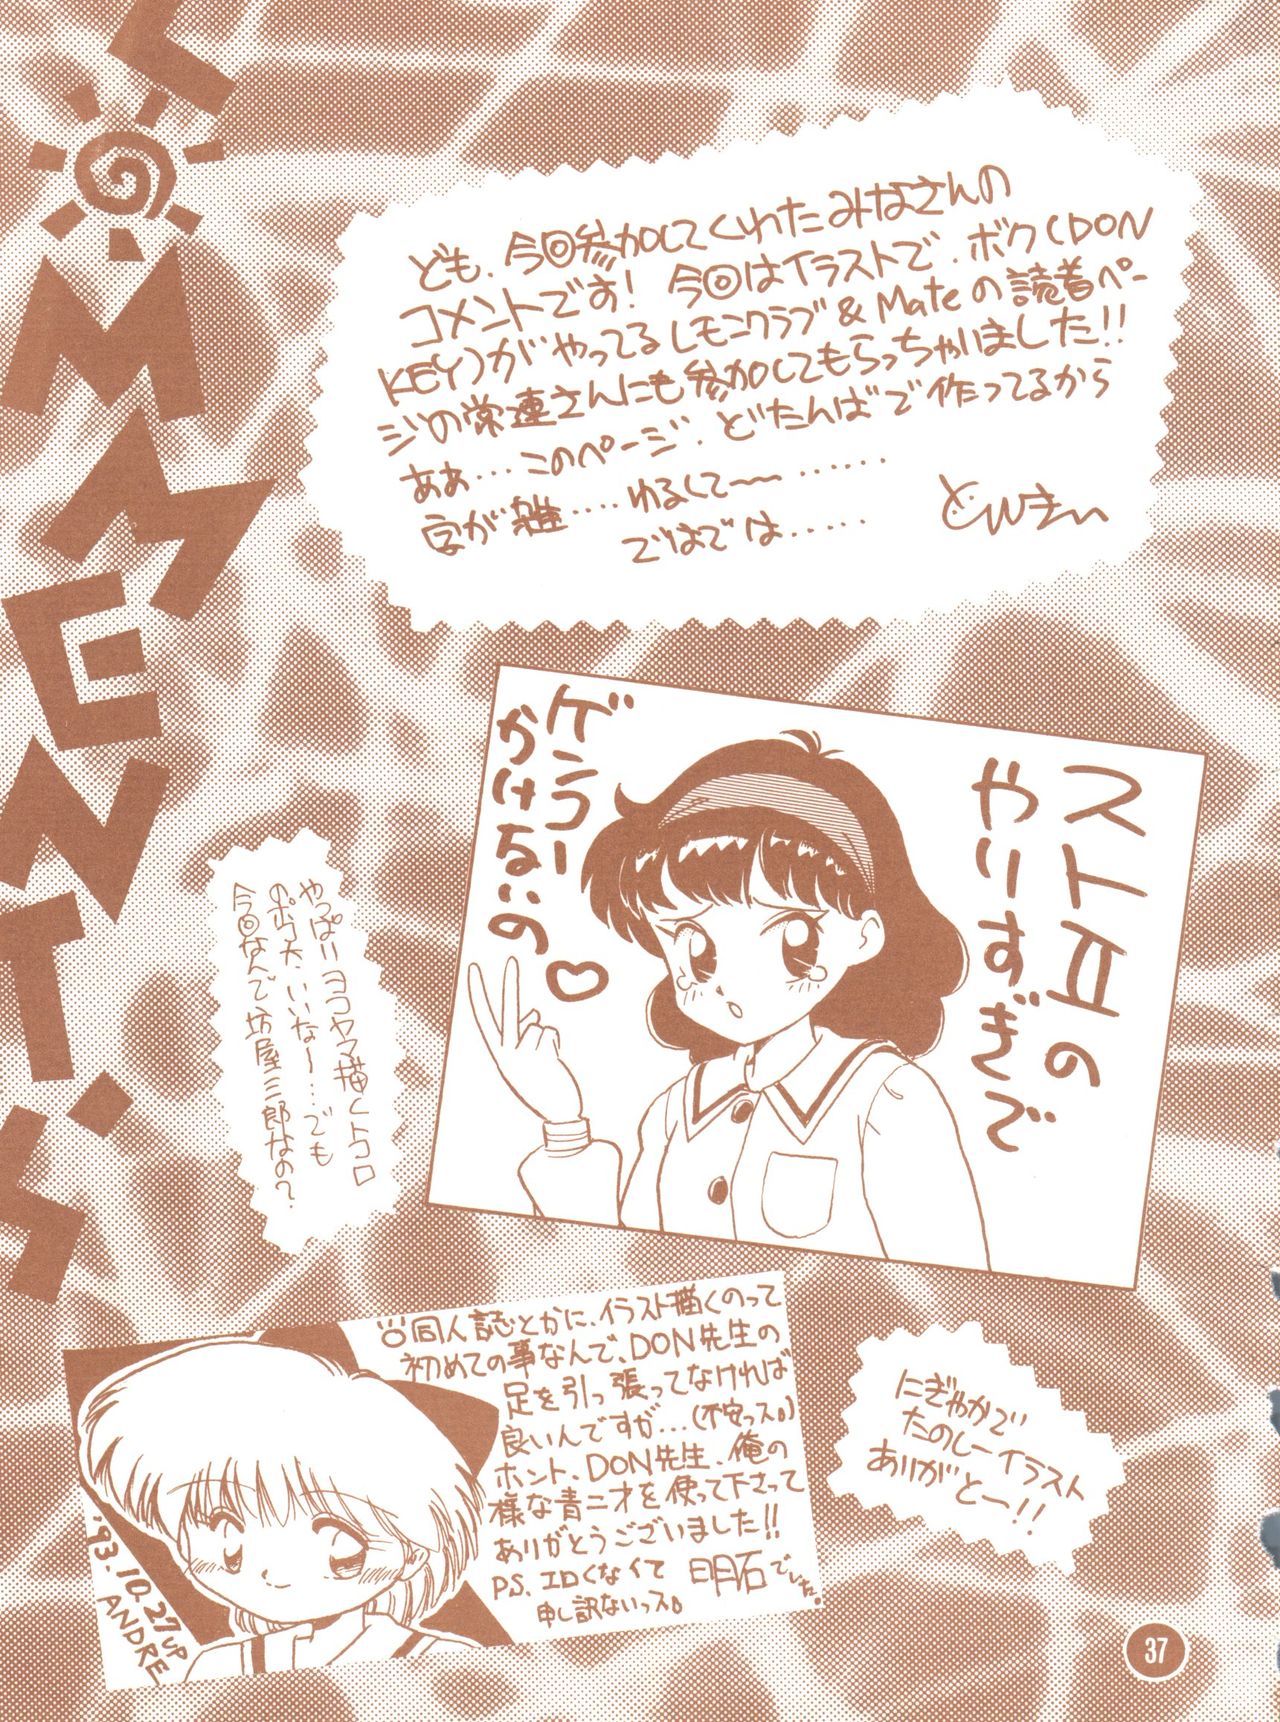 COMMENT'S
ども、今回参加してくれたみなさんの
コメントです! 今回はイラストで、ボク(DON
KEY)がやってるレモンクラブ&Mateの読者ペー
ジの常連さんにも参加してもらっちゃいました!!
ああ…このページ、どたんばで作ってるから
字が雑……ゆるして〜〜……
ではでは……
どんきぃ
ストⅡの
やりすぎで
ゲンコー
かけないの♡
やっぱりヨコヤマ描くトコロ
のボク犬、いいな〜…でも
今回なんで、坊屋三郎なの?
同人誌とかに、イラスト描くのって
初めての事なんで、DON先生の
足を引っ張ってなければ
良いんですが…(不安っス。)
ホント、DON先生、俺の
様な青二才を使って下さって
ありがとうございました!!
PS、エロくなくて
申し訳ないっス。
明石でした。
'93.10.27UP
ANDRE
にぎやかで
たのしーイラスト
ありがとー!!
37